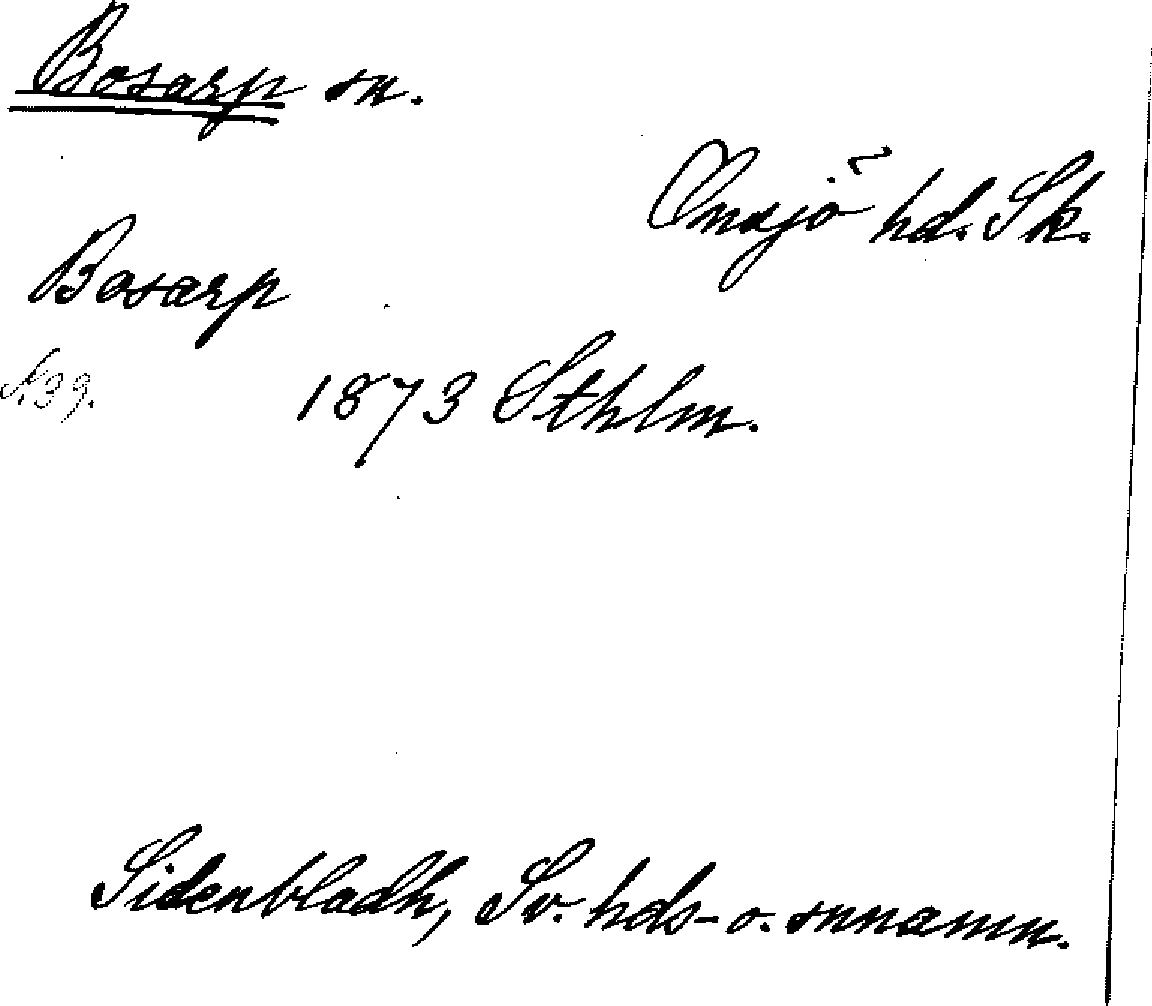 Bosarp sn.
Onsjö hd. Sk.
Bosarp
s. 39.
1873 Sthlm.
Sidenbladh, Sv. hds- o. snnamn.